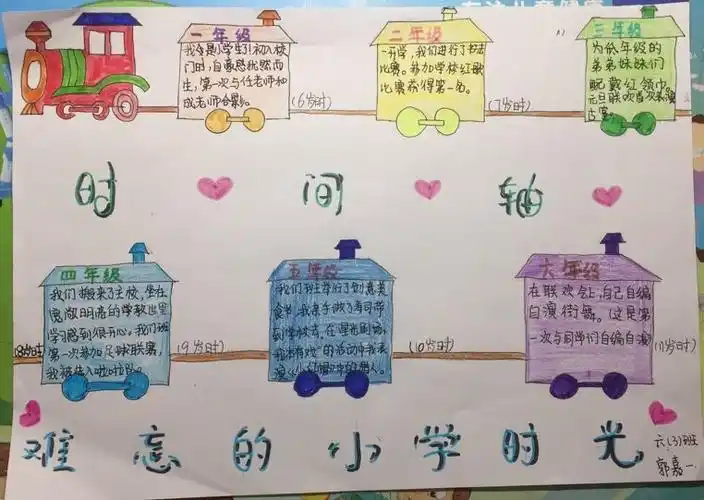 一年级
我今是小学生引初入校
门时,自豪感优然而
生,第一次与任老师和
成老师合影。
(6岁时)
二年级
一开学,我们进行了书法
比赛。参加学校红歌
比赛获得第一名。
(7岁时)
三年级
为低年级的
弟弟妹妹们
配戴红领巾。
元旦联欢首次表演
时间轴
四年级
我们搬来了主校,坐在
宽敞明亮的学教世里
学习感到很开心。我们班
第一次参加足球联赛,
我被选入啦啦队。
(9岁时)
五年级
我们到
食书,我亲手做了寿司带
到学校去,在
的活动中我表
演《小红帽》中的猎人。
(10岁时)
六年级
在联欢会上,自己自编
自演街舞。(这是第
一次与同学们自编自演)
(11岁时)
难忘的小学时光
六(3)班
郭嘉一